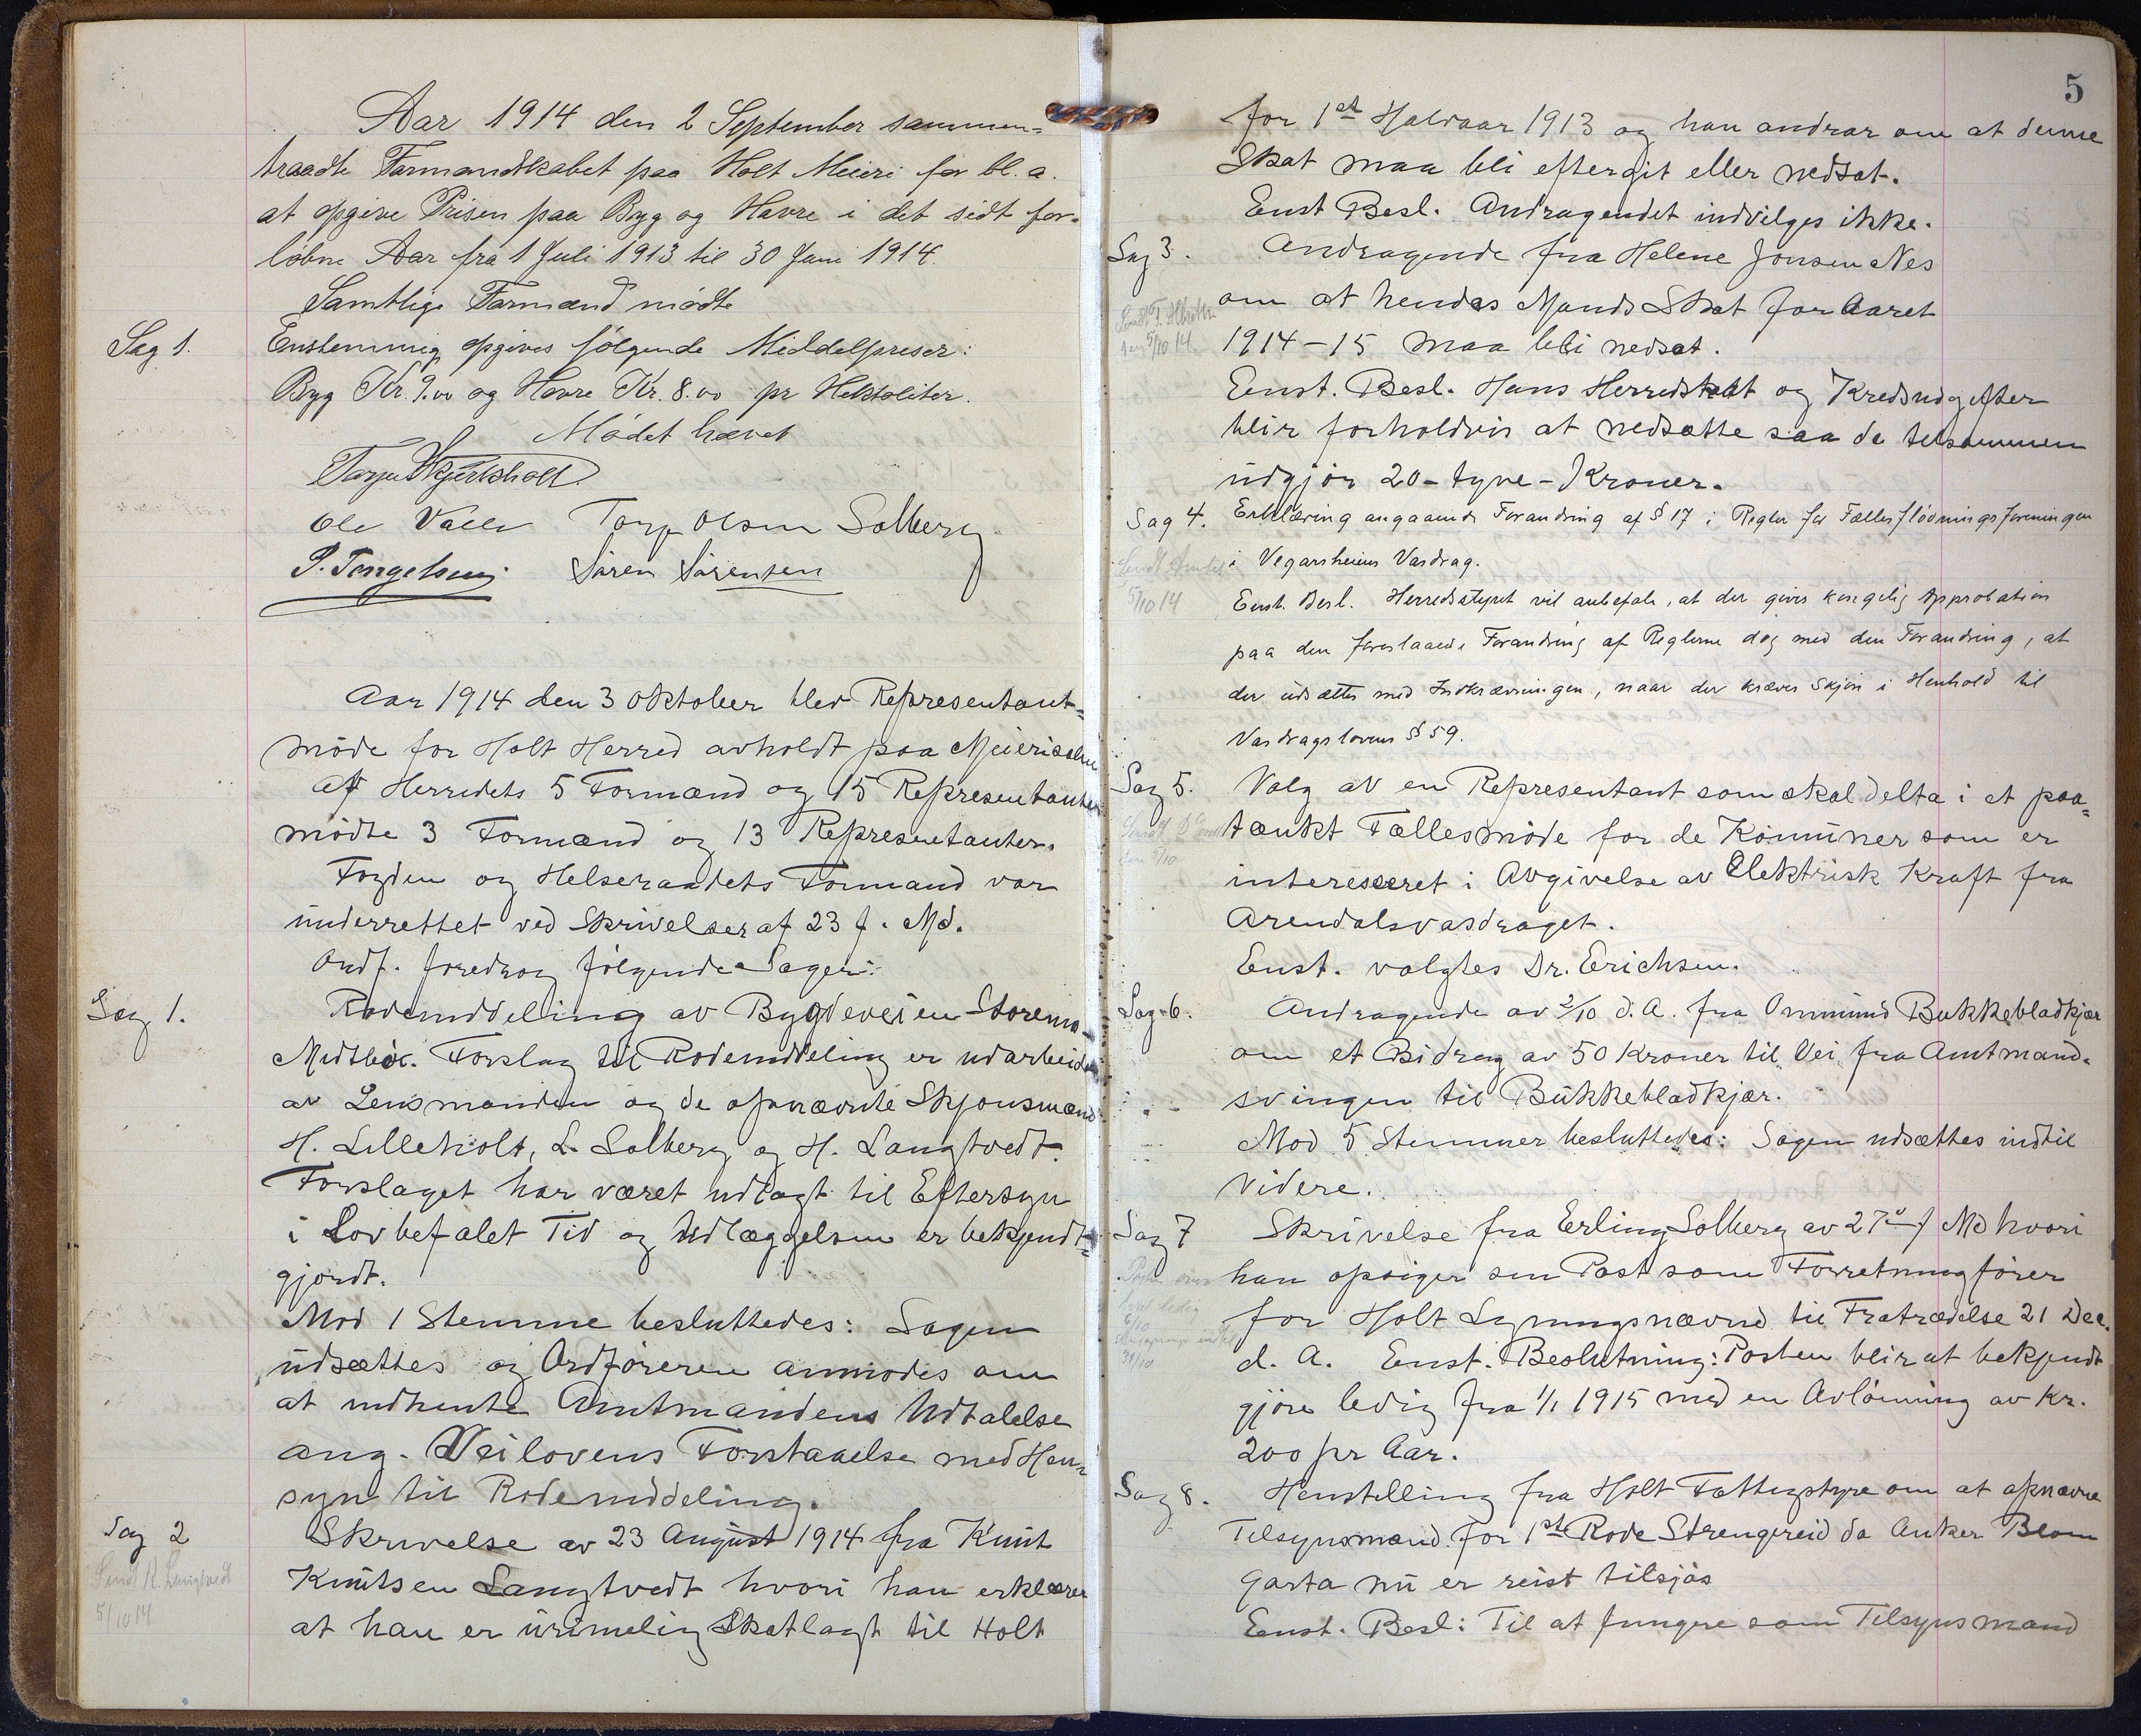 Aar 1914 den 2 September sammen=
traadte Formandskabet paa Holt Meieri for bl. a.
at opgive Prisen paa Byg og Havre i det sidt for-
löbne Aar fra 1 Juli 1913 til 30 Juni 1914.
Samtlige Formænd mödte
Sag 1.
Enstemmig opgives fölgende Middelpriser:
Byg Kr. 9.00 og Havre Kr. 8.00 pr Hektoliter.
Mödet hævet
Ole Valle Torje Olsen Solberg
Sören Sörensen
Aar 1914 den 3 Oktober blev Representant=
möde for Holt Herred avholdt paa Meierisalen
Af Herredets 5 Formænd og 15 Representanter
mödte 3 Formænd og 13 Representanter.
Fogden og Helseraadets Formand var
underrettet ved Skrivelser af 23 f. Md.
Ordf. foredrog fölgende Sager:
Sag 1.
Rodeinddeling av Bygdeveien Storemo-
Midtbö. Forslag til Rodeinddeling er udarbeidet
av Lensmanden og de opnævnte Skjönsmænd
H. Lilleholt, L. Solberg og H. Langtvedt.
Forslaget har været udlagt til Eftersyn
i Lovbefalet Tid og Udlæggelsen er bekjendt=
gjordt.
Mod 1 Stemme besluttedes: Sagen
udsættes og Ordföreren anmodes om
at indhente Amtmandens Udtalelse
ang. Veilovens Forstaaelse med Hen=
syn til Rodeinddeling.
Sag 2
Sendt K. Langtvedt
5/10 14
Skrivelse av 23 August 1914 fra Knut
Knutsen Langtvedt hvori han erklærer
at han er urimelig Skatlagt til Holt
5
for 1st Halvaar 1913 og han andrar om at denne
Skat maa bli eftergit eller nedsat.
Enst Besl. Andragendet indvilges ikke.
Sag 3.
Andragende fra Helene Jonsen Nes
om at hendes Mands Skat for Aaret
1914-15 maa bli nedsat.
Eenst. Besl. Hans Herredskat og Kredsudgifter
blir forholdvis at nedsætte saa de tilsammen
udgjör 20-tyve-Kroner.
Sag 4.
Erklæring angaaende Forandring af § 17 i Regler for Fællesflödningsforeningen
i Vegarsheiens Vasdrag.
5/10 14
Eenst. Besl. Herredsstyret vil anbefale, at der gives kongelig Approbation
paa den foreslaaede Forandring af Reglerne dog med den Forandring, at
der udsættes med Indkrævningen, naar der kræves Skjön i Henhold til
Vasdragslovens § 59.
Sag 5.
Valg av en Representant som skal delta i et paa=
tænkt Fællesmöde for de Komuner som er
interesseret i Avgivelse av Elektrisk Kraft fra
Arendalsvasdraget.
Eenst. valgtes Dr. Erichsen.
Sag 6.
Andragende av 2/10 d. A. fra Ommund Bukkebladkjær
om et Bidrag av 50 Kroner til Vei fra Amtmand-
svingen til Bukkebladkjær.
Mod 5 Stemmer besluttedes: Sagen udsættes indtil
videre.
Sag 7
Skrivelse fra Erling Solberg av 27de f Md hvori
han opsiger sin Post som Forretningförer
for Holt Ligningsnævnd til Fratrædelse 21 Dec.
d. A. Eenst. Beslutning: Posten blir at bekjendt
gjöre ledig fra 1/1 1915 med en Avlönning av Kr.
200 pr Aar.
Sag 8.
Henstilling fra Holt Fattigstyre om at opnævne
Tilsynsmand for 1ste Rode Strengereid da Anker Blom
Garta nu er reist tilsjös
Eenst. Besl: Til at fungere som Tilsynsmand